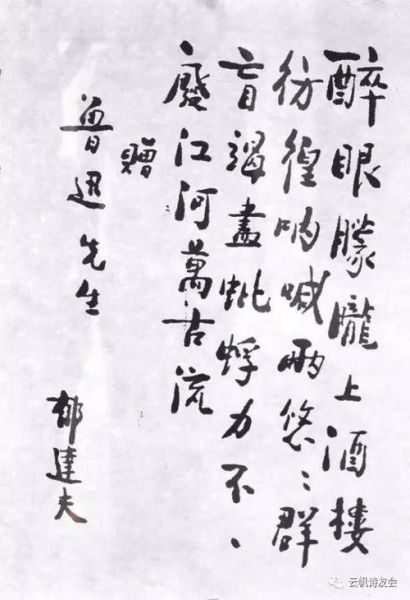 醉眼朦朧上酒樓
彷徨吶喊兩悠〻群
盲竭盡蚍蜉力不、
廢江河萬古流
贈
魯迅先生
郁達夫
云帆诗友会